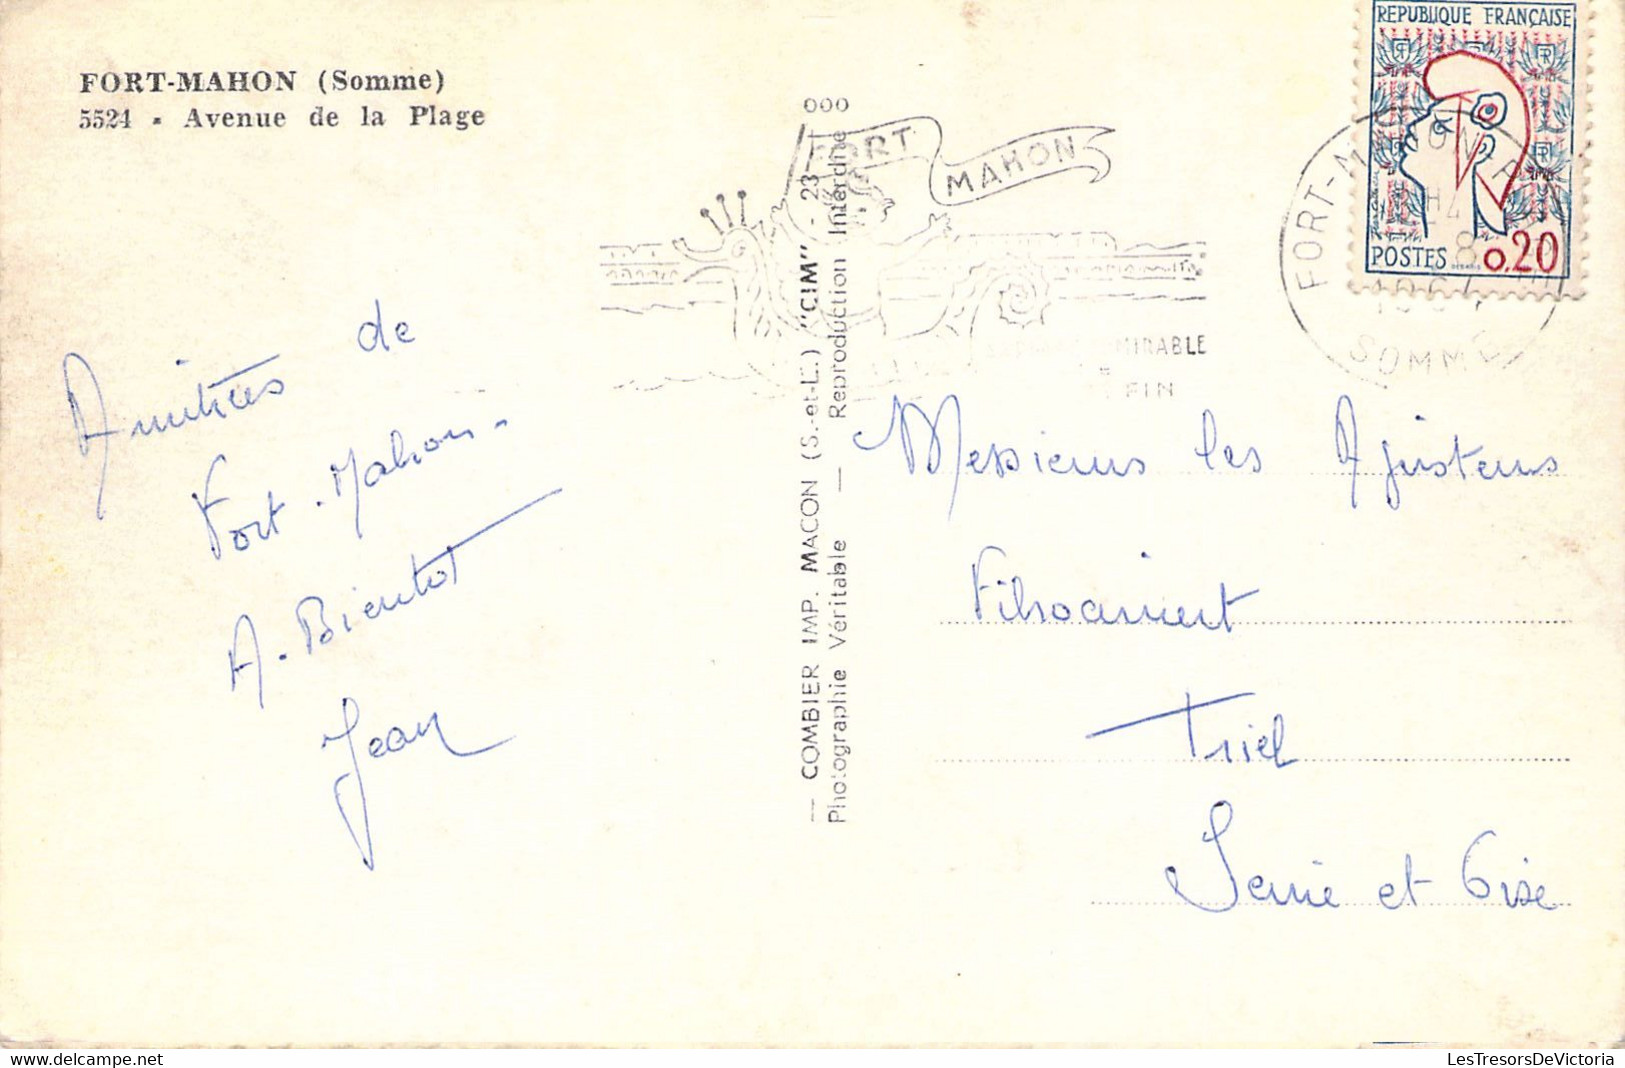 FORT-MAHON (Somme)
5524 - Avenue de la Plage
Amitiées de
Fort-Mahon-
A-Bientot
Jean
— COMBIER IMP. MACON (S.-et-L.) "CIM" - 23
Photographie Véritable — Reproduction Interdite
000
FORT
MAHON
MIRABLE
FIN
REPUBLIQUE FRANÇAISE
POSTES 0,20
FORT-MAHON-P
SOMME
Messieurs les Ajusteurs
Triel
Seine et Oise
LesTresorsDeVictoria